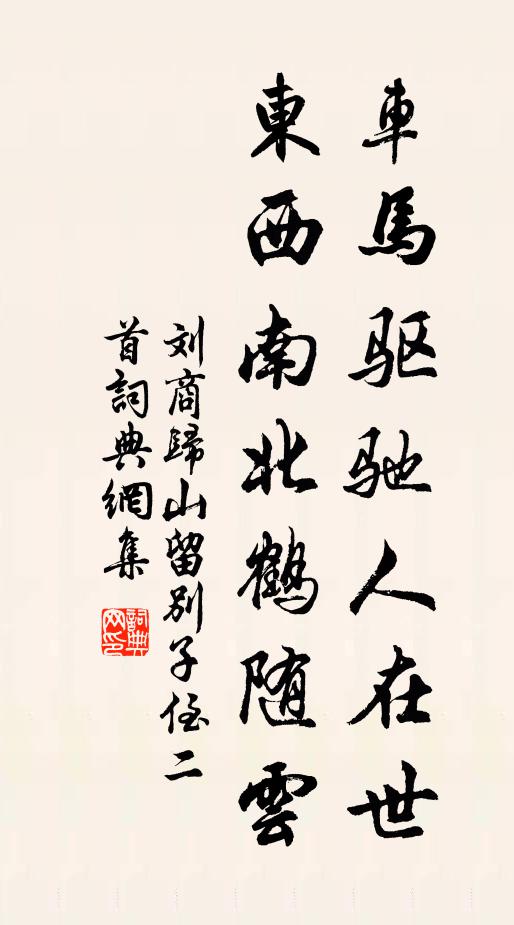 車馬驱驰人在世
東西南北鶴随雲
刘商歸山留别子侄二
首詞典網集
詞典
网印